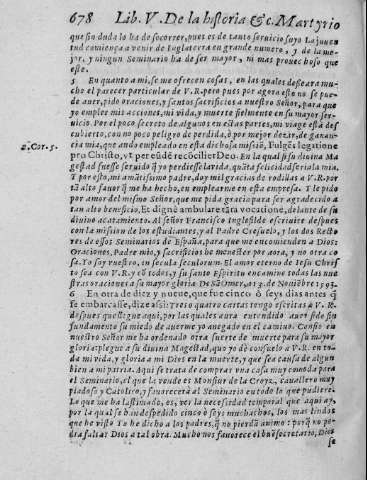 678 Lib. V. De la historia &c. Martyrio
que sin duda lo ha de socorrer, pues es de tanto servicio suyo La juven
tud comiença a venir de Inglaterra en grande numero, y de la me-
jor, y ningun Seminario ha de ser mayor, ni mas provechoso que
este.
5 En quanto a mi, se me ofrecen cosas, en las quales desseara mu-
cho el parecer particular de V.R. pero pues por agora este no se pue-
de aver, pido oraciones, y santos sacrificios a nuestro Señor, para que
yo emplee mis acciones, mi vida, y muerte fielmente en su mayor ser-
vicio. Por el poco secreto de algunos en estas partes, mi viage està des
cubierto, con no poco peligro de perdida, ò por mejor dezir, de ganan-
cia mia, que ando empleado en esta dichosa missiō, Fulgēs legatione
2. Cor. 5.
pro Christo, vt
Deo. En la qual si su divina Ma
gestad fuesse servido
yo perdiesse la vida, quāta felicidad seria la mia.
T por esto, mi amātissimo padre, doy mil gracias de rodillas a V.R. por
tā alto favor q̄ me ha hecho, en emplearme en esta empresa. T le pido
por amor del mismo Señor, que me pida gracia para ser agradecido a
tan alto beneficio, Et dignè ambulare
tāta vocatione, delante de su
divino acatamiento. Al señor Francisco Inglesilde escriviré despues
con la mission de los estudiantes, y al Padre Cresuelo, y los dos Recto
res de essos Seminarios de España, para que me encomienden a Dios:
Oraciones, Padre mio, y sacrificios he menester por aora, y no otra co
sa. To soy vuestro, in secula seculorum. El amor eterno de Iesu Chris
to sea con V.R. y cō todos, y su santo Espiritu encamine todas las nue
stras oraciones a su mayor gloria De Sāt Omer, a 13. de Noviēbre 1593.
6 En otra de diez y nueve, que fue cinco ò seys dias antes q̄
se embarcasse, dize assi:
quatro cartas tengo escritas a V.R.
despues que llegue aqui, por las quales aura entendido auer sido sin
fundamento su miedo de averme yo anegado en el camino. Confio en
nuestro Señor me ha ordenado otra suerte de muerte para su mayor
gloria: plegue a su divina Magestad, que yo dè consuelo a V.R. en to-
da mi vida, y gloria a mi Dios en la muerte, y que sea causa de algun
bien a mi patria. Aqui se trata de comprar una casa muy comoda para
el Seminario, el que la vende es Monsiur de la Croyx, cavallero muy
piadoso y Catolico, y favorecerà al Seminario en todo lo que pudiere.
Lo que me ha lastimado, es, ver la necesidad temporal que aqui ay,
por la qual se han despedido cinco ò seys muchachos, los mas lindos
que he visto To he dicho a los padres, q̄ no pierdā animo: porq̄ no po
dra faltar Dios a tal obra. Mucho nos favorece el buē secretario, Dios
se